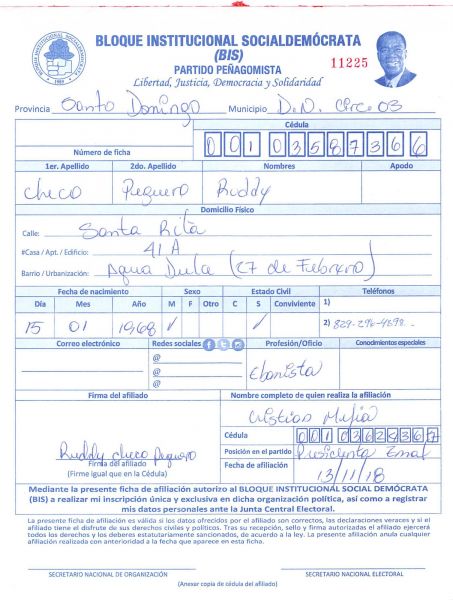 BLOQUE INSTITUCIONAL SOCIALDEMÓCRATA
(BIS)
11225
PARTIDO PEÑAGOMISTA
Libertad, Justicia, Democracia y Solidaridad
Provincia Santo Domingo Municipio D.N. Circ. 03
Cédula
Número de ficha 001 0358736 6
1er. Apellido 2do. Apellido Nombres Apodo
Checo Peguero Ruddy
Domicilio Físico
Calle: Santa Rita
#Casa / Apt. / Edificio: 41 A
Barrio / Urbanización: Agua Dulce (27 de Febrero)
Fecha de nacimiento Sexo Estado Civil Teléfonos
Día Mes Año M F Otro C S Conviviente 1)
15 01 1968 ✓ ✓ 2) 829-296-4698
Correo electrónico Redes sociales Profesión/Oficio Conocimientos especiales
@
@
@
Ebanista
Firma del afiliado Nombre completo de quien realiza la afiliación
Cristian Mejia
Cédula
Ruddy checo Peguero
Firma del afiliado
(Firme igual que en la Cédula)
Posición en el partido
Fecha de afiliación 13/11/18
Mediante la presente ficha de afiliación autorizo al BLOQUE INSTITUCIONAL SOCIAL DEMÓCRATA
(BIS) a realizar mi inscripción única y exclusiva en dicha organización política, así como a registrar
mis datos personales ante la Junta Central Electoral.
La presente ficha de afiliación es válida si los datos ofrecidos por el afiliado son correctos, las declaraciones veraces y si el
afiliado tiene el disfrute de sus derechos civiles y políticos. Tras su recepción, sello y firma autorizada el afiliado ejercerá
todos los derechos y los deberes estatutariamente sancionados, de acuerdo a la ley. La presente afiliación anula cualquier
afiliación realizada con anterioridad a la fecha que aparece en esta ficha.
SECRETARIO NACIONAL DE ORGANIZACIÓN SECRETARIO NACIONAL ELECTORAL
(Anexar copia de cédula del afiliado)